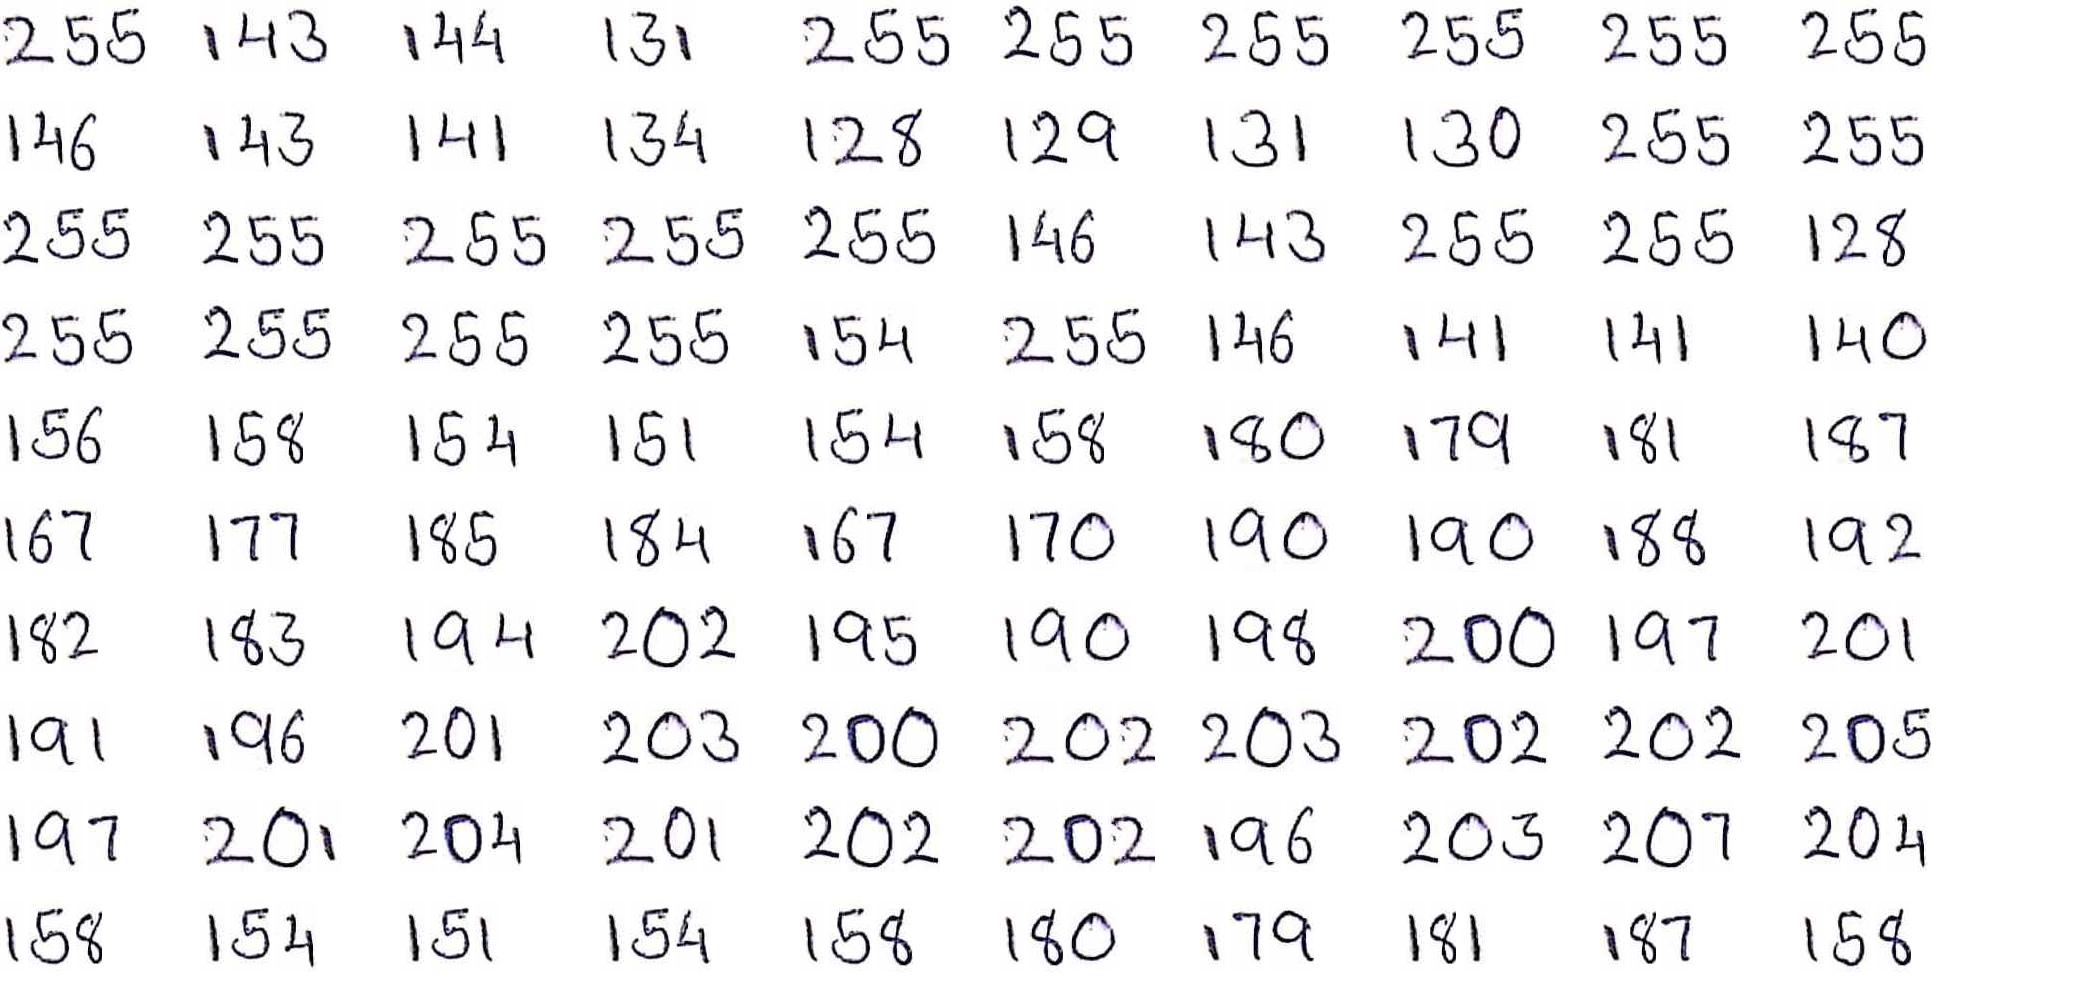 255 143 144 131 255 255 255 255 255 255
146 143 141 134 128 129 131 130 255 255
255 255 255 255 255 146 143 255 255 128
255 255 255 255 154 255 146 141 141 140
156 158 154 151 154 158 180 179 181 187
167 177 185 184 167 170 190 190 188 192
182 183 194 202 195 190 198 200 197 201
191 196 201 203 200 202 203 202 202 205
197 201 204 201 202 202 196 203 207 204
158 154 151 154 158 180 179 181 187 158